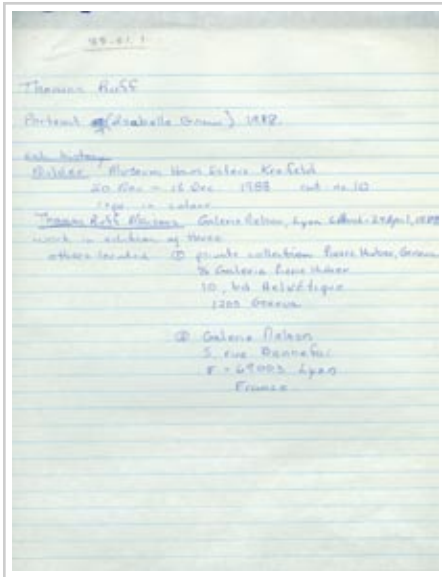 Thomas Ruff
Portrait (Isabelle Graw) 1988
exh. history
Bilder Museum Haus Esters Krefeld
20 Nov - 15 Dec 1988 cat. no. 10
repr. in colour
Thomas Ruff Maisons Galerie Nelson, Lyon April, 1989
work in edition of three
others located ① private collection Pierre Huber, Geneva
% Galerie Pierre Huber
10, bd Helvétique
1205 Geneva
② Galerie Nelson
5, rue
F - 69003 Lyon
France